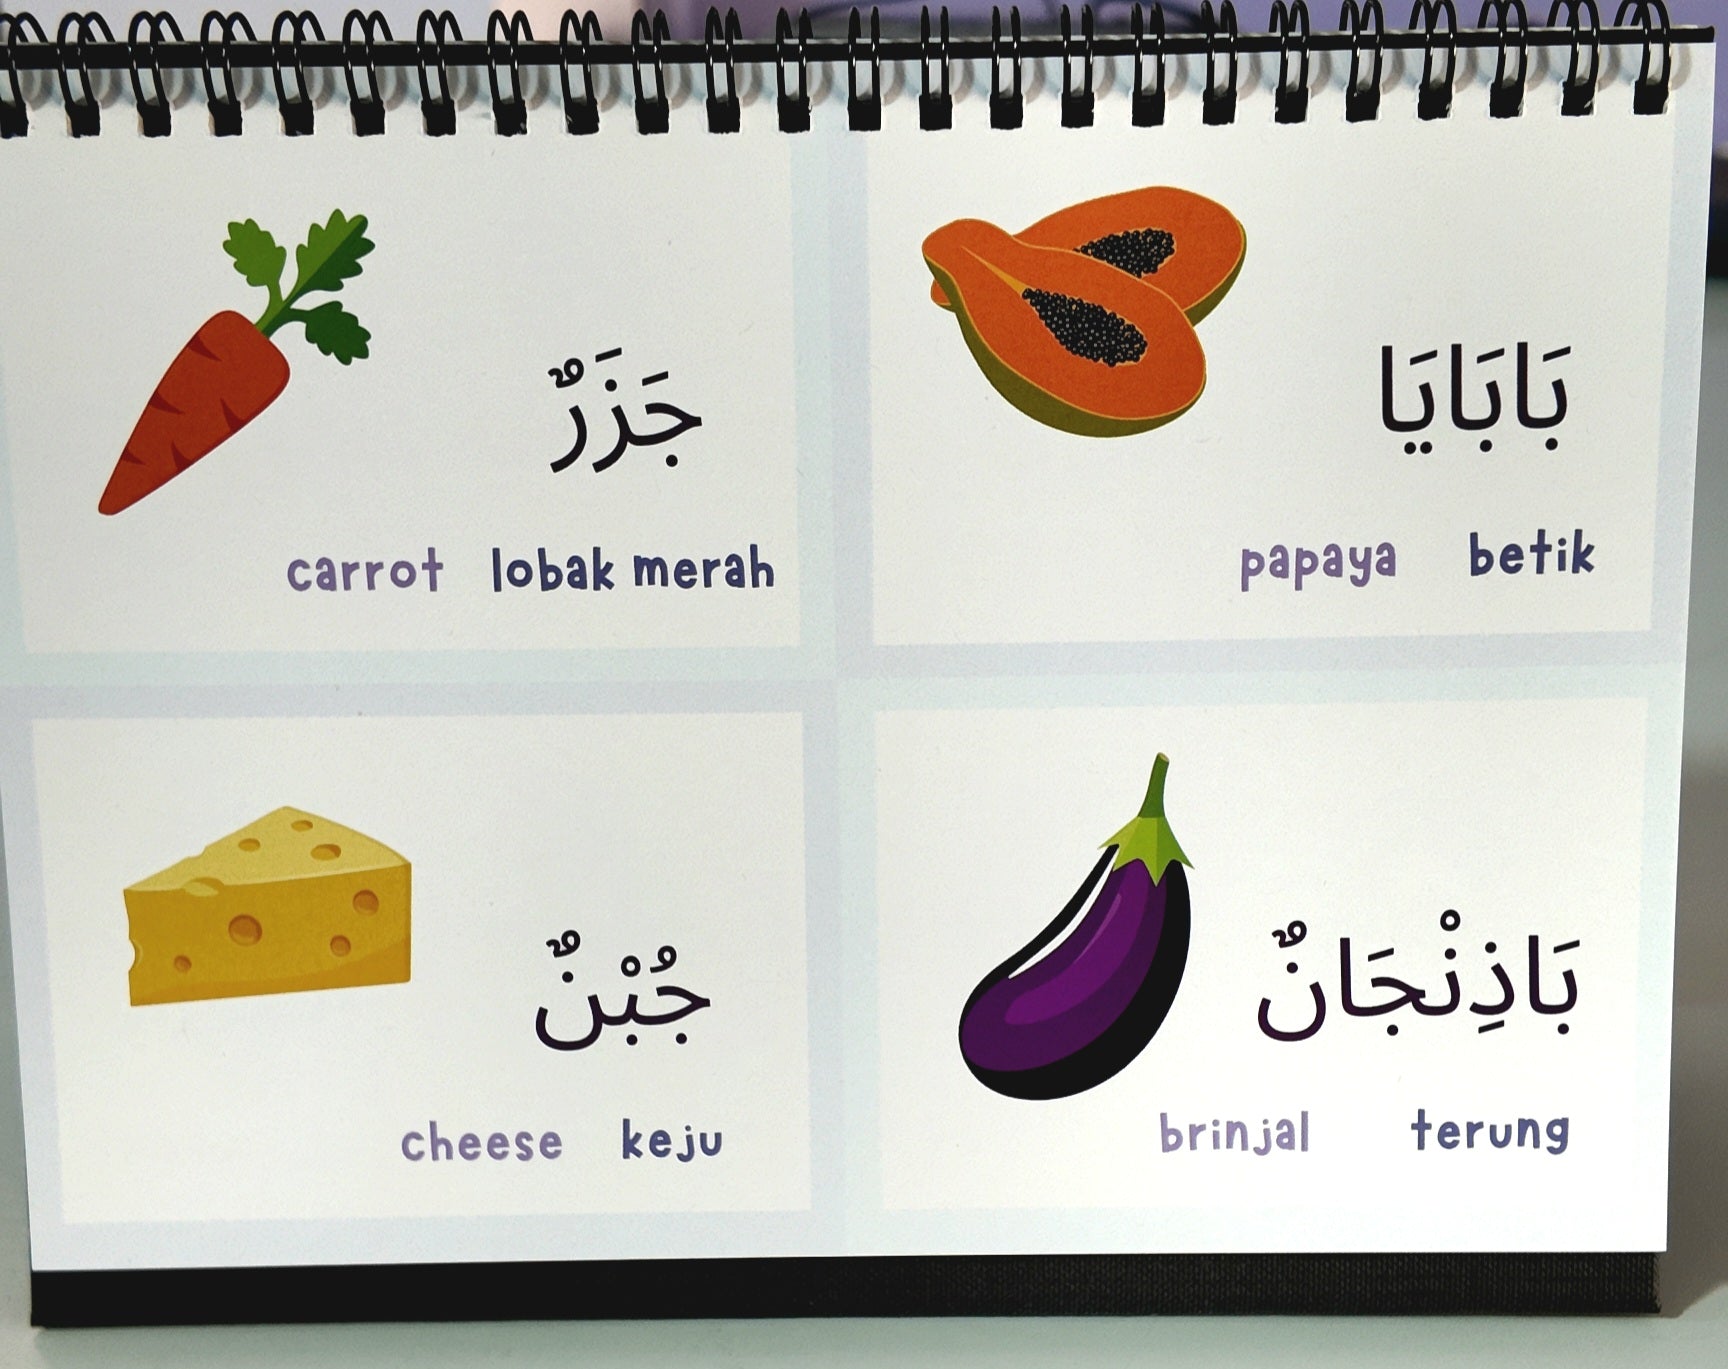 جَزَرٌ
carrot lobak merah
بَابَايَا
papaya betik
جُبْنٌ
cheese keju
بَاذِنْجَانٌ
brinjal terung